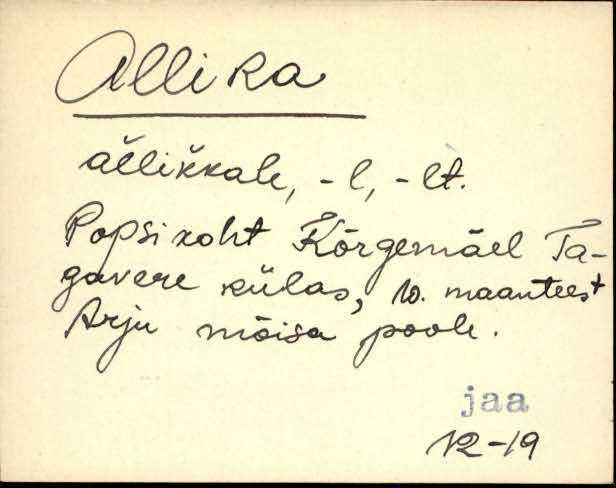 Allika
al̆likkale, -l, -lt.
Popsikoht Kõrgemäel Ta-
gavere külas, 10. maanteest
Arju mõisa poole.
jaa
12-19